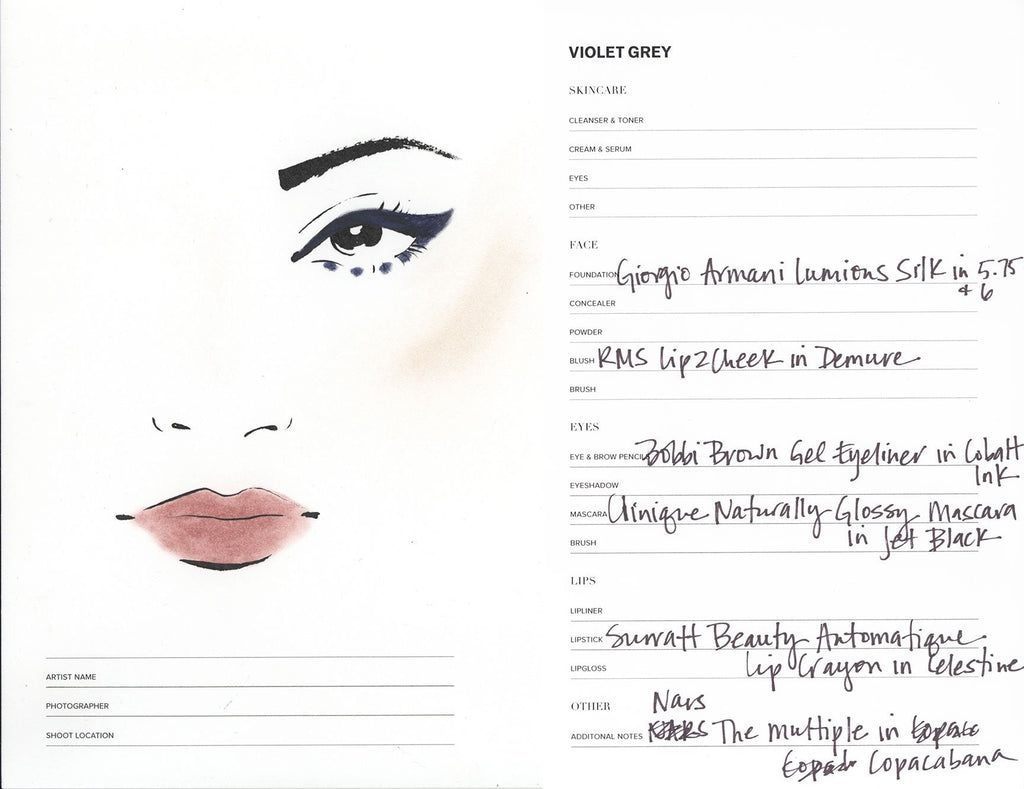 VIOLET GREY
SKINCARE
CLEANSER & TONER
CREAM & SERUM
EYES
OTHER
FACE
FOUNDATION Giorgio Armani Lumious Silk in 5.75
& 6
CONCEALER
POWDER
BLUSH RMS Lip2Cheek in Demure.
BRUSH
EYES
EYE & BROW PENCILS Bobbi Brown Gel Eyeliner in Cobalt
Ink
EYESHADOW
MASCARA Clinique Naturally Glossy Mascara
in Jet Black
BRUSH
LIPS
LIPLINER
LIPSTICK Surratt Beauty Automatique
LIPGLOSS Lip Crayon in Celestine
OTHER Nars
ADDITONAL NOTES The multiple in
Copacabana
ARTIST NAME
PHOTOGRAPHER
SHOOT LOCATION